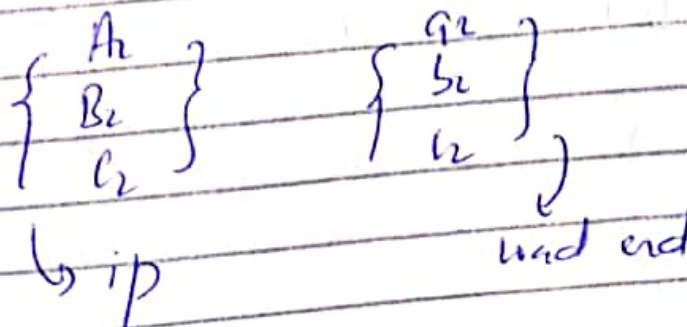 { A2 } { a2 }
B2 b2
C2 c2
↳ ip load end